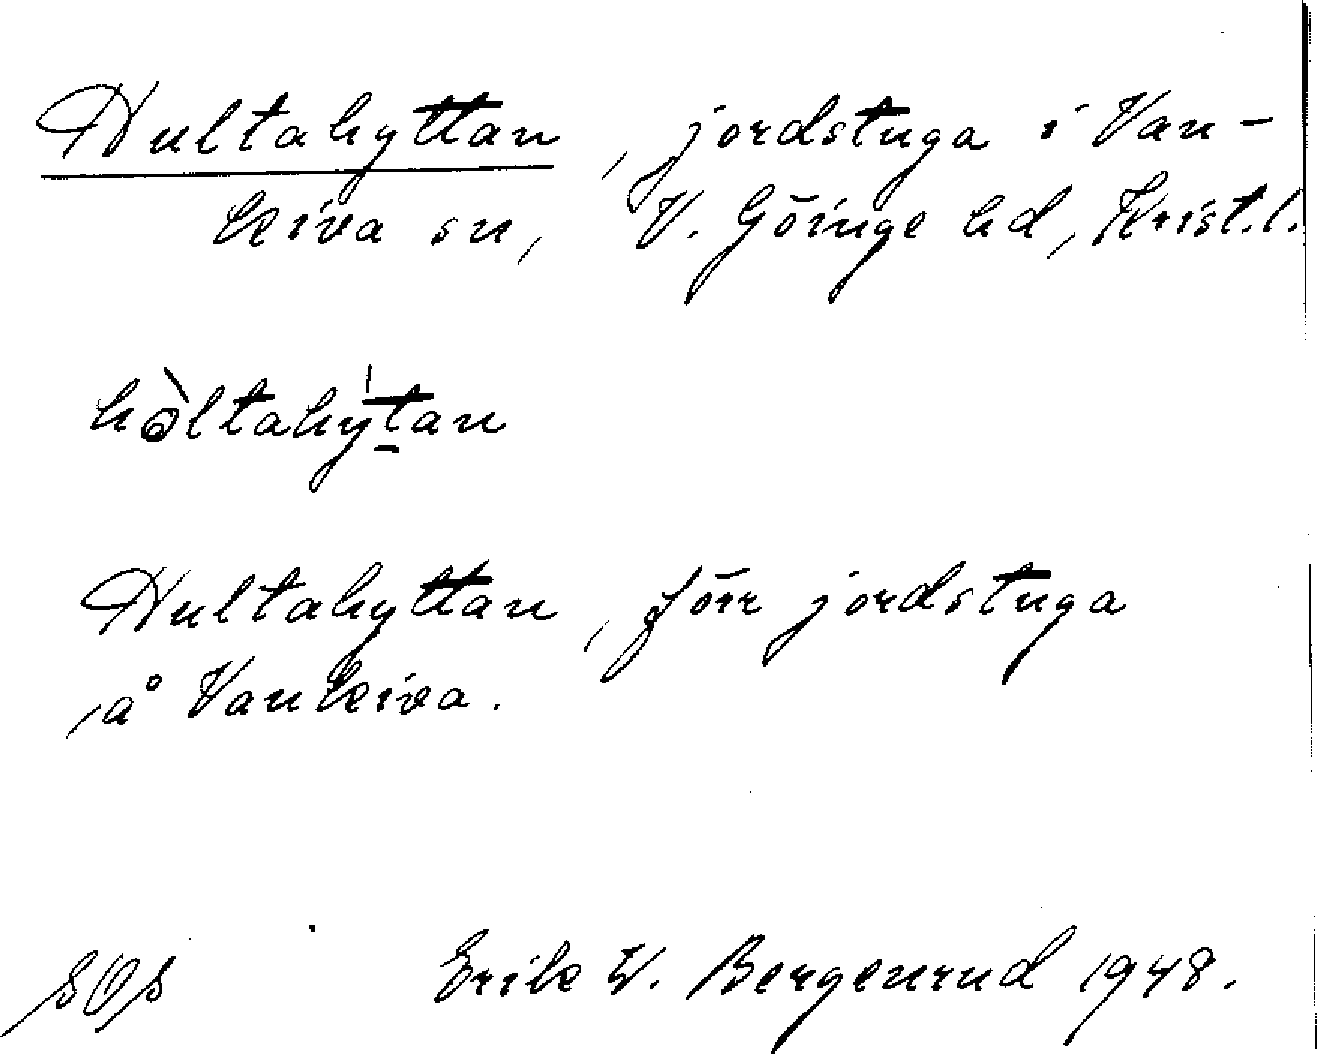 Hultahyttan, jordstuga i Van-
kiva sn, V. Göinge hd, Krist.l.
hòltahy̍tan
Hultahyttan, förr jordstuga
å Vankiva.
SOS Erik W. Bergenrud 1948.